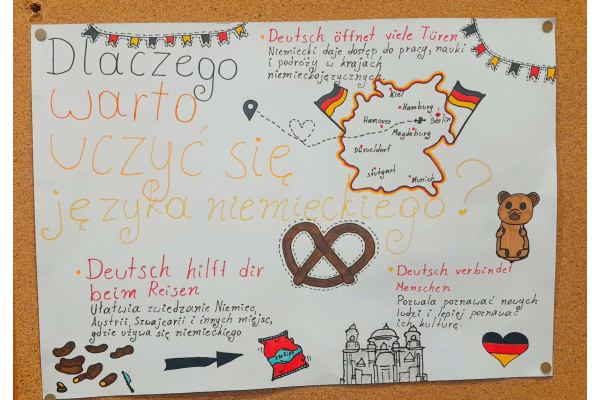 Dlaczego
warto
uczyć się
języka niemieckiego?
• Deutsch öffnet viele Türen
Niemiecki daje dostęp do pracy, nauki
i podróży w krajach
niemieckojęzycznych.
Kiel
Hamburg
Berlin
Hanover
Magdeburg
Düsseldorf
Stuttgart
Munich
• Deutsch hilft dir
beim Reisen
Ułatwia zwiedzanie Niemiec,
Austrii, Szwajcarii i innych miejsc,
gdzie używa się niemieckiego
• Deutsch verbindet
Menschen
Pozwala poznawać nowych
ludzi i lepiej poznawać
ich kulturę.